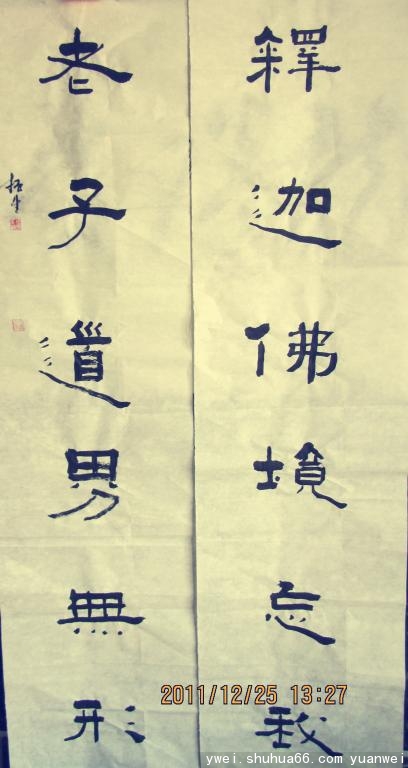 釋迦佛境忘我
老子道男無形
拓牛
2011/12/25 13:27
ywei.shuhua66.com yuanwei